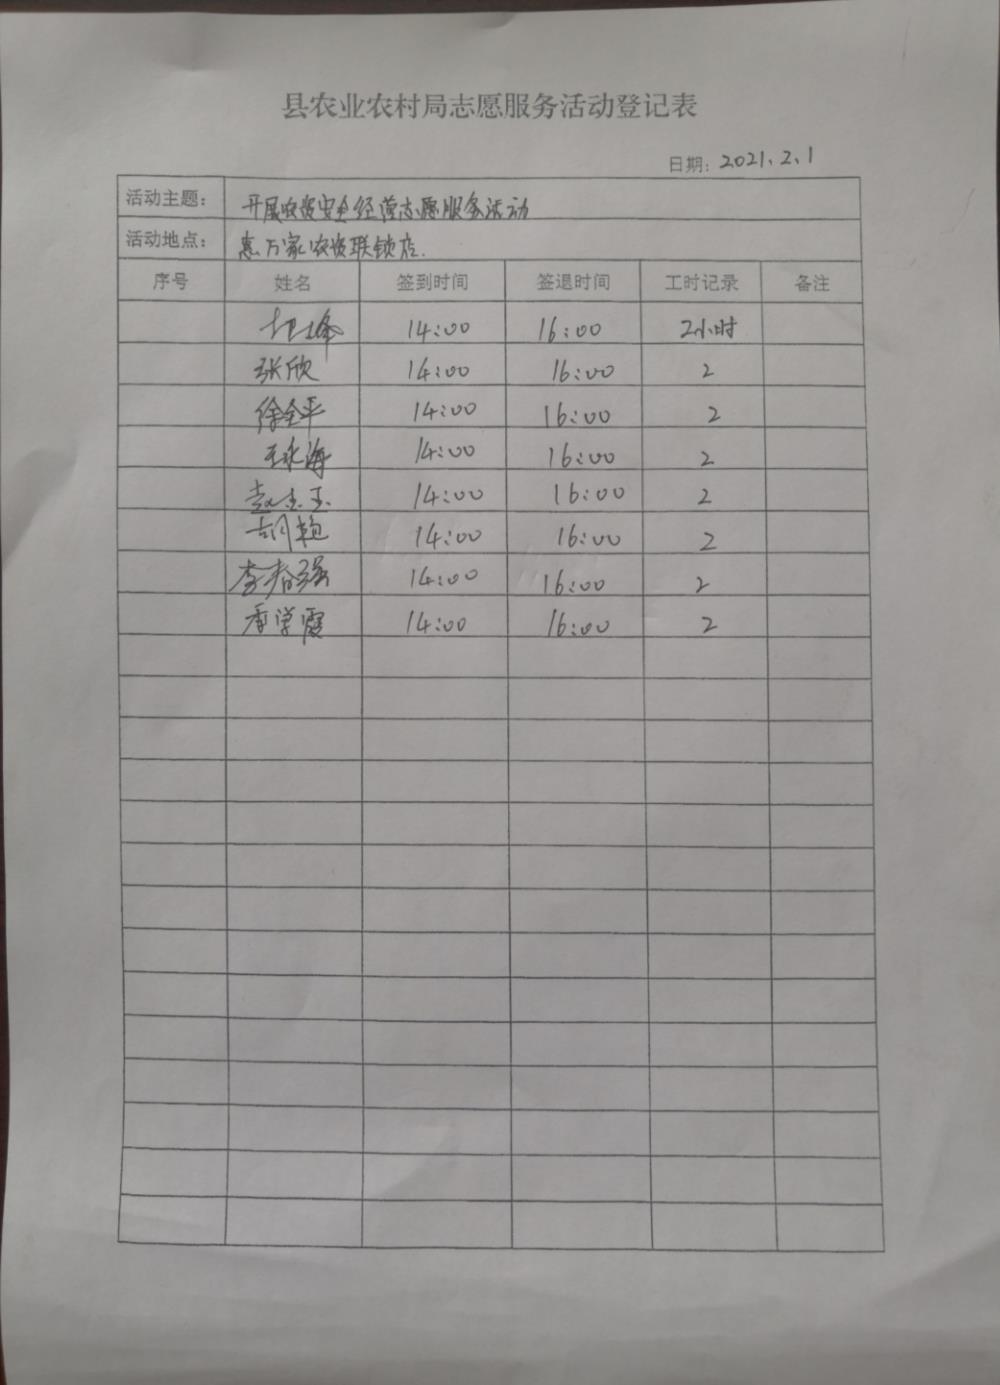 县农业农村局志愿服务活动登记表
日期: 2021.2.1
活动主题: 开展农资安全经营志愿服务活动
活动地点: 惠万家农资联锁店.
序号 姓名 签到时间 签退时间 工时记录 备注
14:00 16:00 2小时
张欣 14:00 16:00 2
徐全平 14:00 16:00 2
王永海 14:00 16:00 2
赵志玉 14:00 16:00 2
胡艳 14:00 16:00 2
李春强 14:00 16:00 2
香学霞 14:00 16:00 2